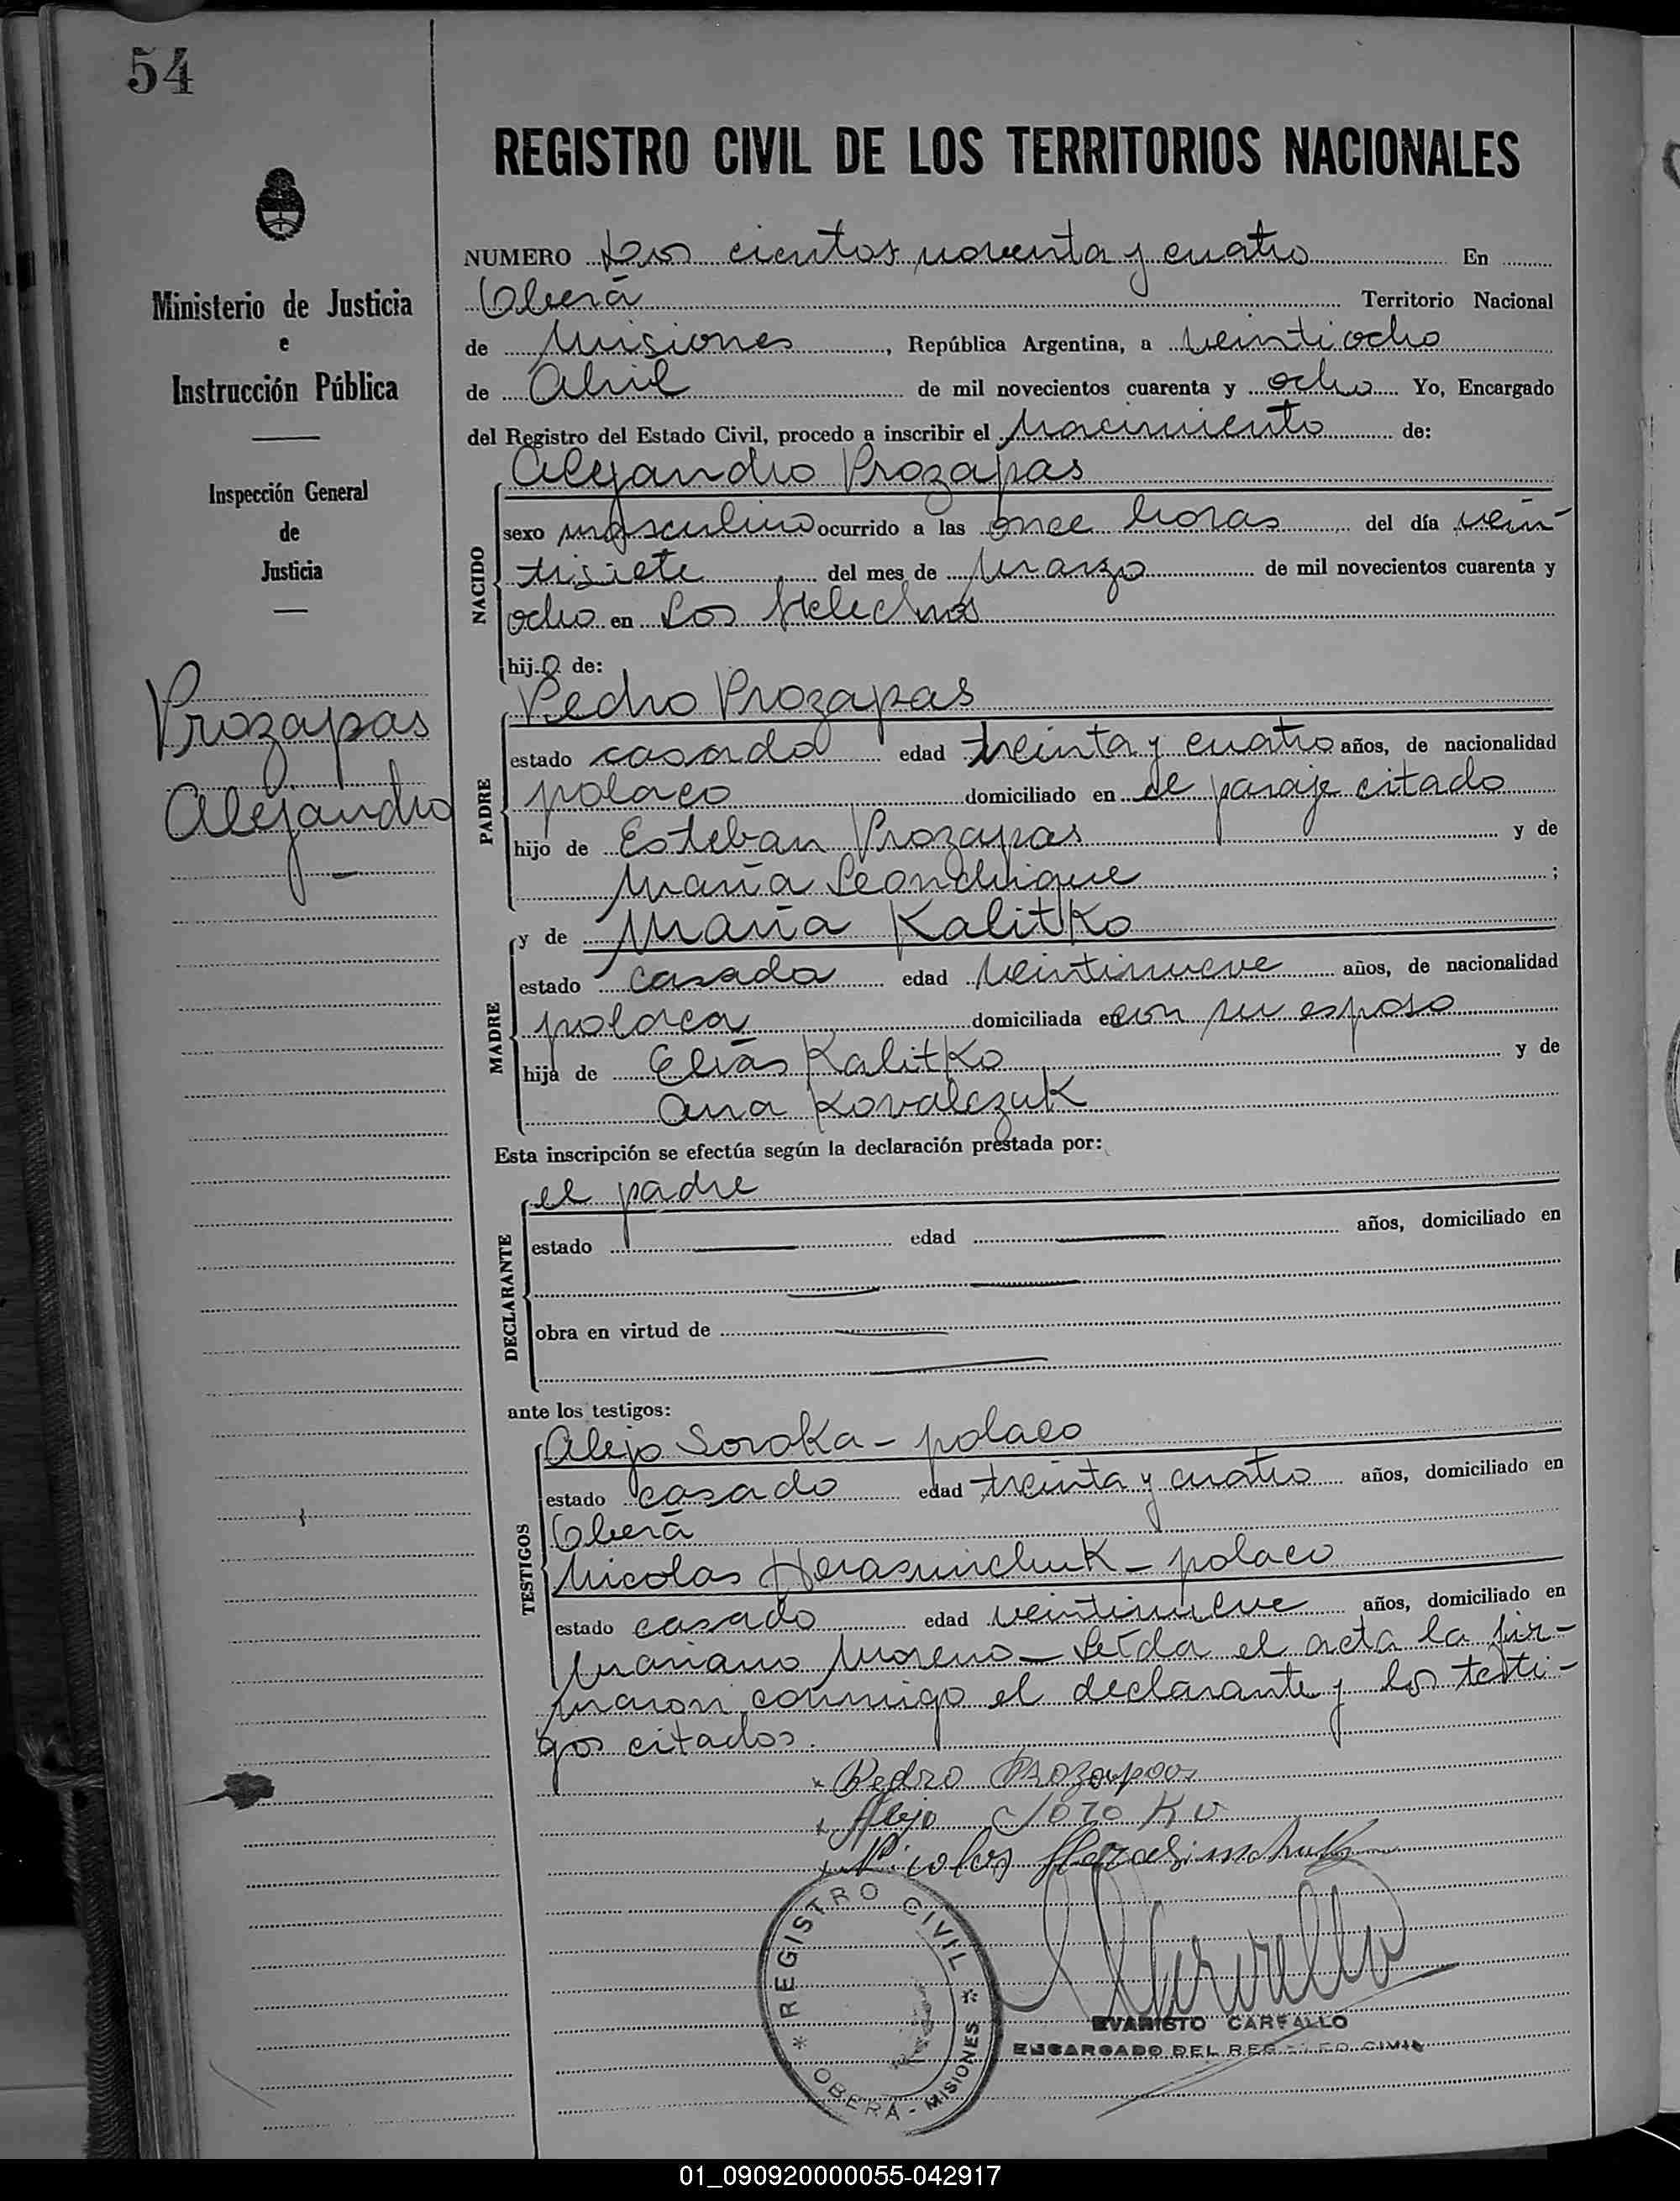 54
REGISTRO CIVIL DE LOS TERRITORIOS NACIONALES
Ministerio de Justicia
e
Instrucción Pública
Inspección General
de
Justicia
Prozapas
Alejandro
NUMERO Dos cientos noventa y cuatro En
Oberá Territorio Nacional
de Misiones, República Argentina, a veintiocho
de Abril de mil novecientos cuarenta y ocho Yo, Encargado
del Registro del Estado Civil, procedo a inscribir el Nacimiento de:
NACIDO
Alejandro Prozapas
sexo masculino ocurrido a las once horas del día vein-
tisiete del mes de Marzo de mil novecientos cuarenta y
ocho en Los Helechos
hijo de:
PADRE
Pedro Prozapas
estado casado edad treinta y cuatro años, de nacionalidad
polaco domiciliado en el paraje citado
hijo de Esteban Prozapas y de
María Leonchique ;
MADRE
y de María Kalitko
estado casada edad veintinueve años, de nacionalidad
polaca domiciliada en con su esposo
hija de Elías Kalitko y de
Ana Kovalczuk
Esta inscripción se efectúa según la declaración prestada por:
DECLARANTE
el padre
estado — edad — años, domiciliado en
obra en virtud de —
ante los testigos:
TESTIGOS
Alejo Soroka - polaco
estado casado edad treinta y cuatro años, domiciliado en
Oberá
Nicolas Herasimchuk - polaco
estado casado edad veintinueve años, domiciliado en
Mariano Moreno - Leída el acta la fir-
maron conmigo el declarante y los testi-
gos citados.
Pedro Prozapas
Alejo Soroka
Nicolas Harasimchuk
REGISTRO CIVIL
OBERA - MISIONES
EVARISTO CARVALLO
ENCARGADO DEL REGISTRO CIVIL
01_090920000055-042917